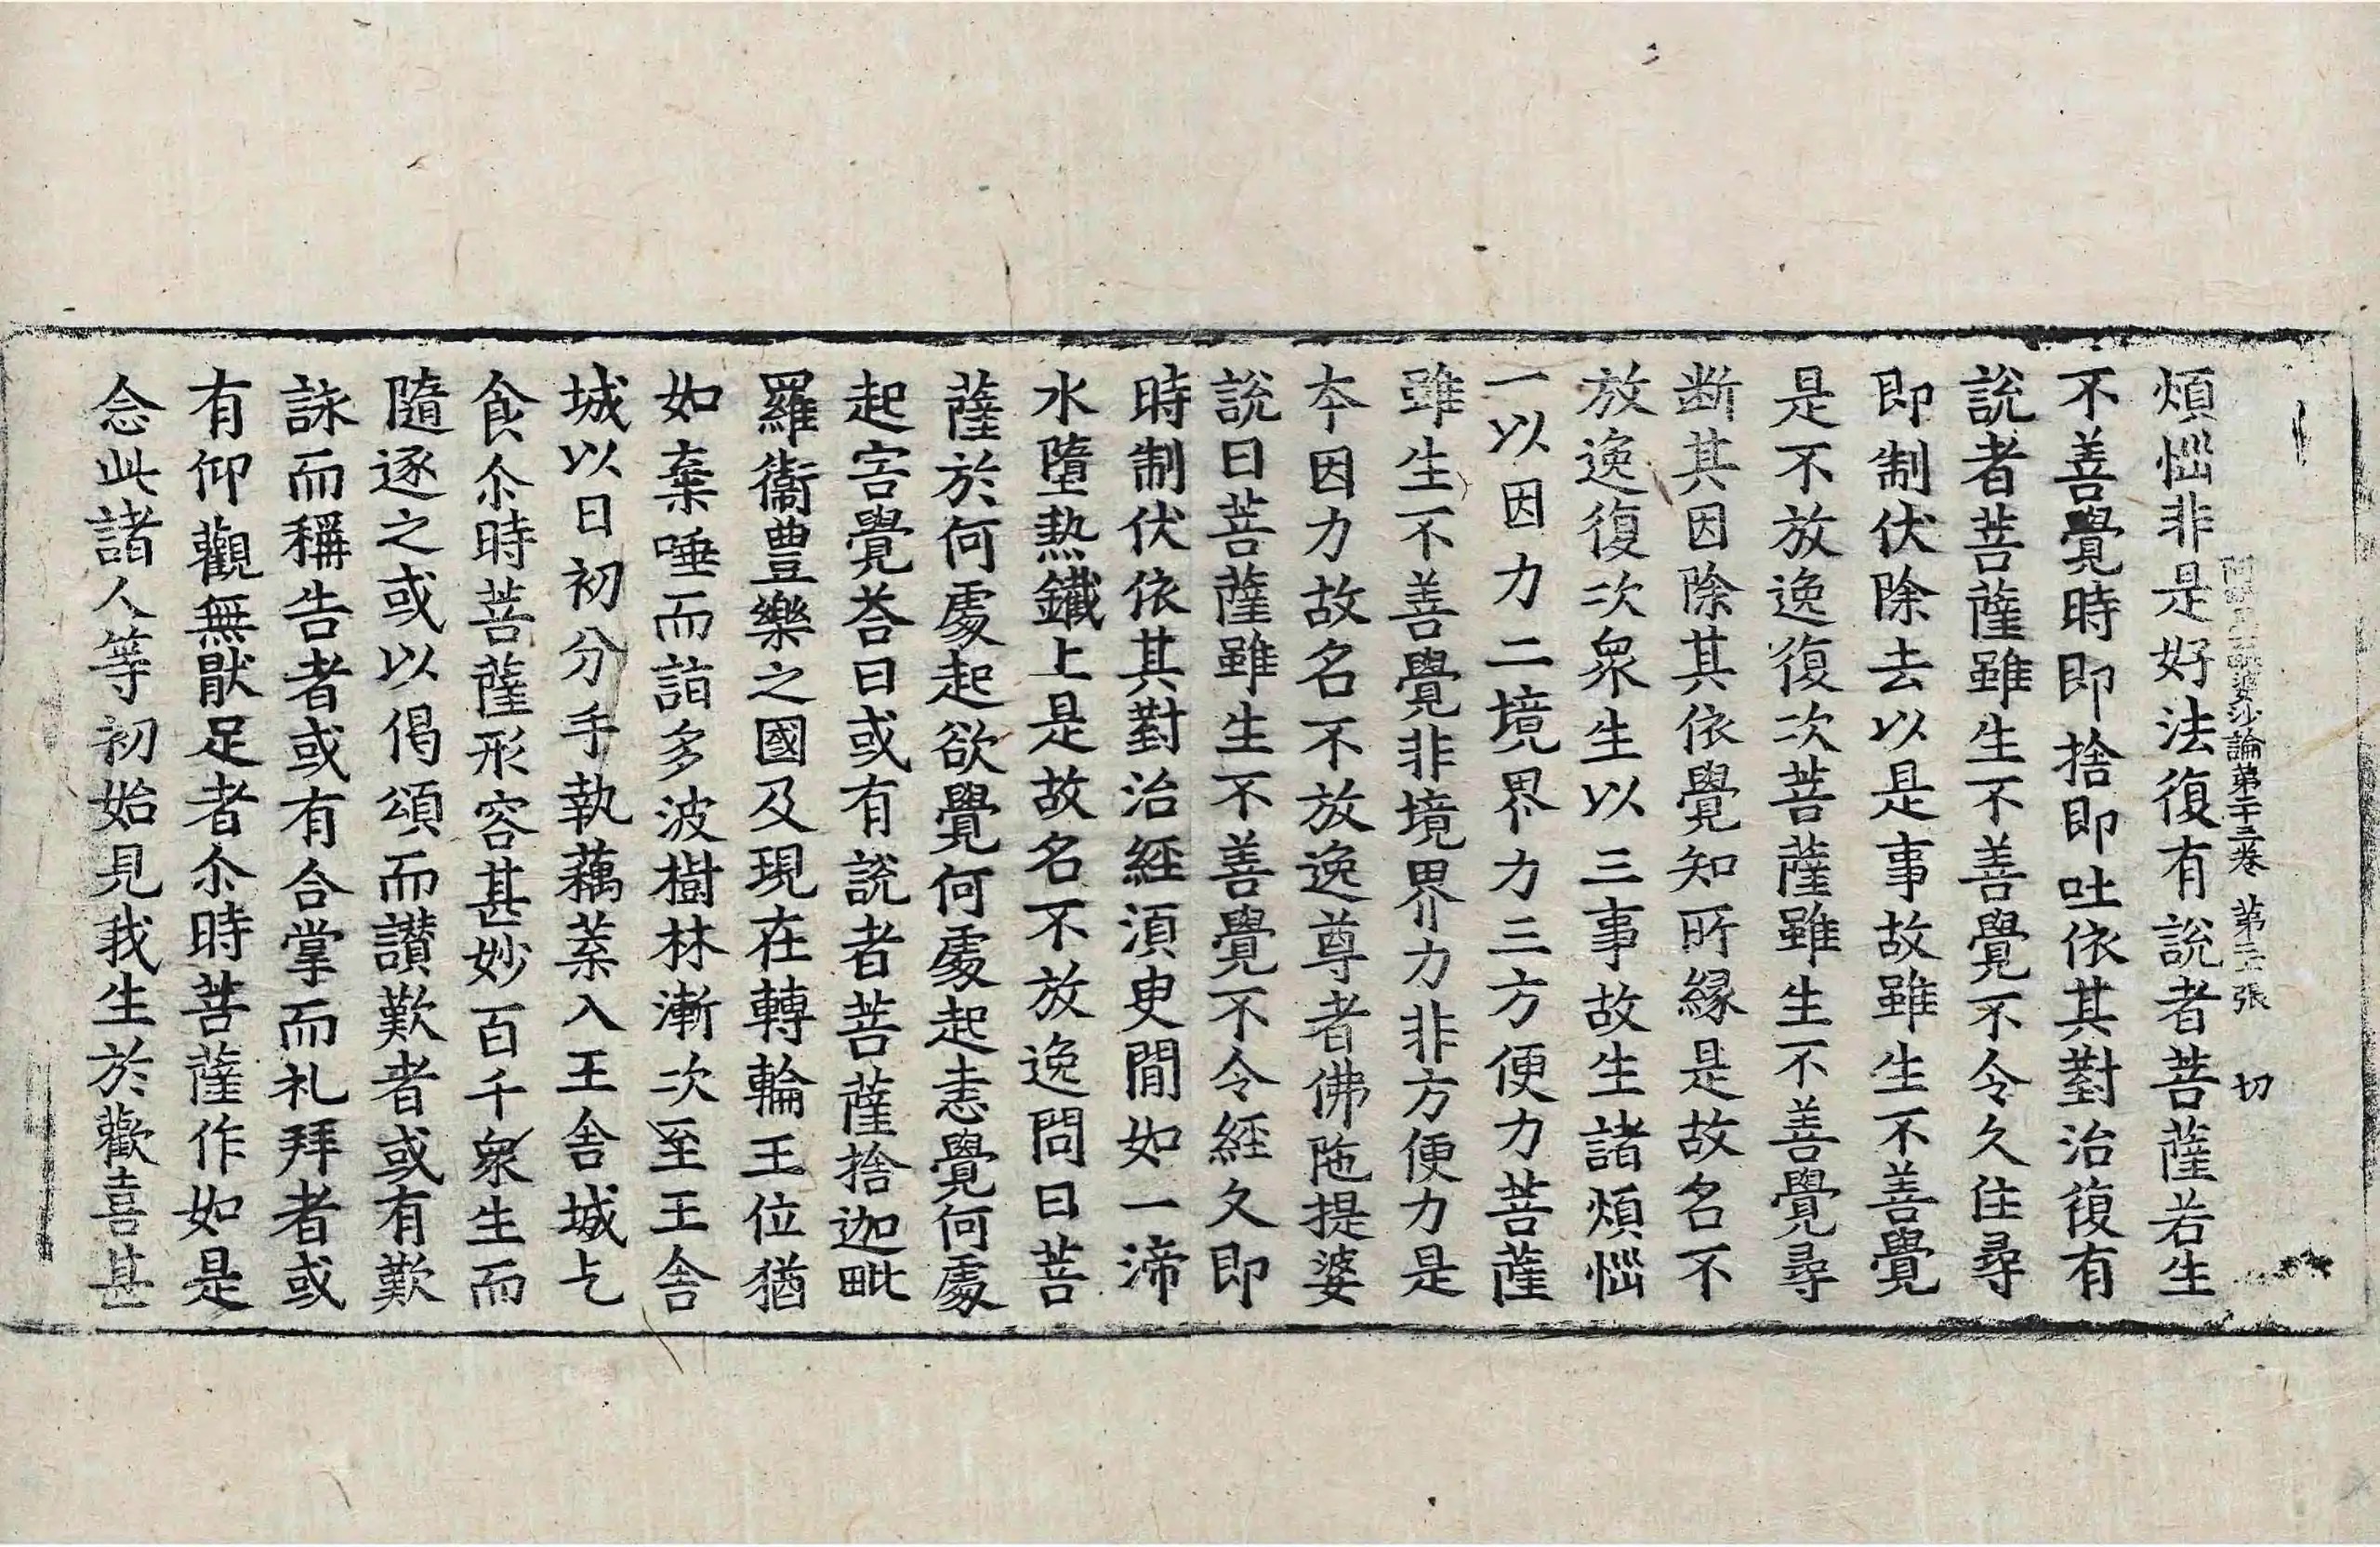 阿毗曇毗婆沙論第二十三卷 第二十張 切
煩惱非是好法復有說者菩薩若生
不善覺時即捨即吐依其對治復有
說者菩薩雖生不善覺不令久住尋
即制伏除去以是事故雖生不善覺
是不放逸復次菩薩雖生不善覺尋
断其因除其依覺知所緣是故名不
放逸復次衆生以三事故生諸煩惱
一以因力二境界力三方便力菩薩
雖生不善覺非境界力非方便力是
本因力故名不放逸尊者佛陁提婆
說曰菩薩雖生不善覺不令經久即
時制伏依其對治經須臾閒如一渧
水墮熱鐵上是故名不放逸問曰菩
薩於何處起欲覺何處起恚覺何處
起害覺荅曰或有說者菩薩捨迦毗
羅衞豊樂之國及現在轉輪王位猶
如棄唾而詣多波樹林漸次至王舍
城以日初分手執藕葉入王舍城乞
食尒時菩薩形容甚妙百千衆生而
隨逐之或以偈頌而讃歎者或有歎
詠而稱告者或有合掌而礼拜者或
有仰觀無猒足者尒時菩薩作如是
念此諸人等初始見我生於歡喜甚